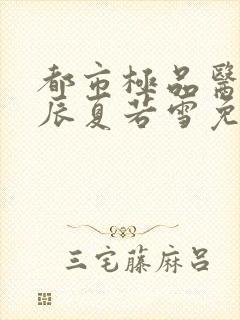 都市極品醫
辰夏若雪免
三宅藤麻呂